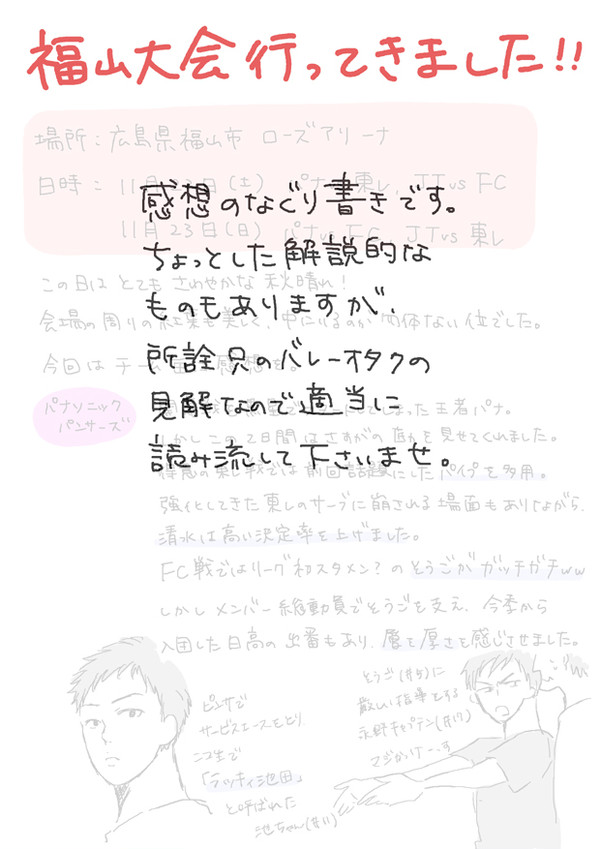 福山大会行ってきました!!
場所：広島県福山市 ローズアリーナ
日時： 11月 日(土) パナ 東レ、JT vs FC
11月23日(日) パナ vs FC、JT vs 東レ
感想のなぐり書きです。
ちょっとした解説的な
ものもありますが、
所詮只のバレーオタクの
見解なので適当に
読み流して下さいませ。
この日はとてもさわやかな秋晴れ！
会場の周りの紅葉も美しく、中にいるのが勿体ない位でした。
今回はチーム 感想を。
パナソニック
パンサーズ
しまった王者パナ。
しかしこの2日間はさすがの 力を見せてくれました。
戦では前回話題にしたパイプを多用。
強化してきた東レのサーブに崩される場面もありながら、
清水は高い決定率を上げました。
FC戦ではリーグ初スタメン？のとうごがガッチガチww
しかしメンバー総動員でとうごを支え、今季から
入団した日高の出番もあり、層の厚さを感じさせました。
ピンサで
サービスエースをとり
ニコ生で
「ラッキィ池田」
と呼ばれた
池ちゃん(#11)
とうご(#5)に
厳しい指導をする
永野キャプテン(#17)
マジかっけーっす